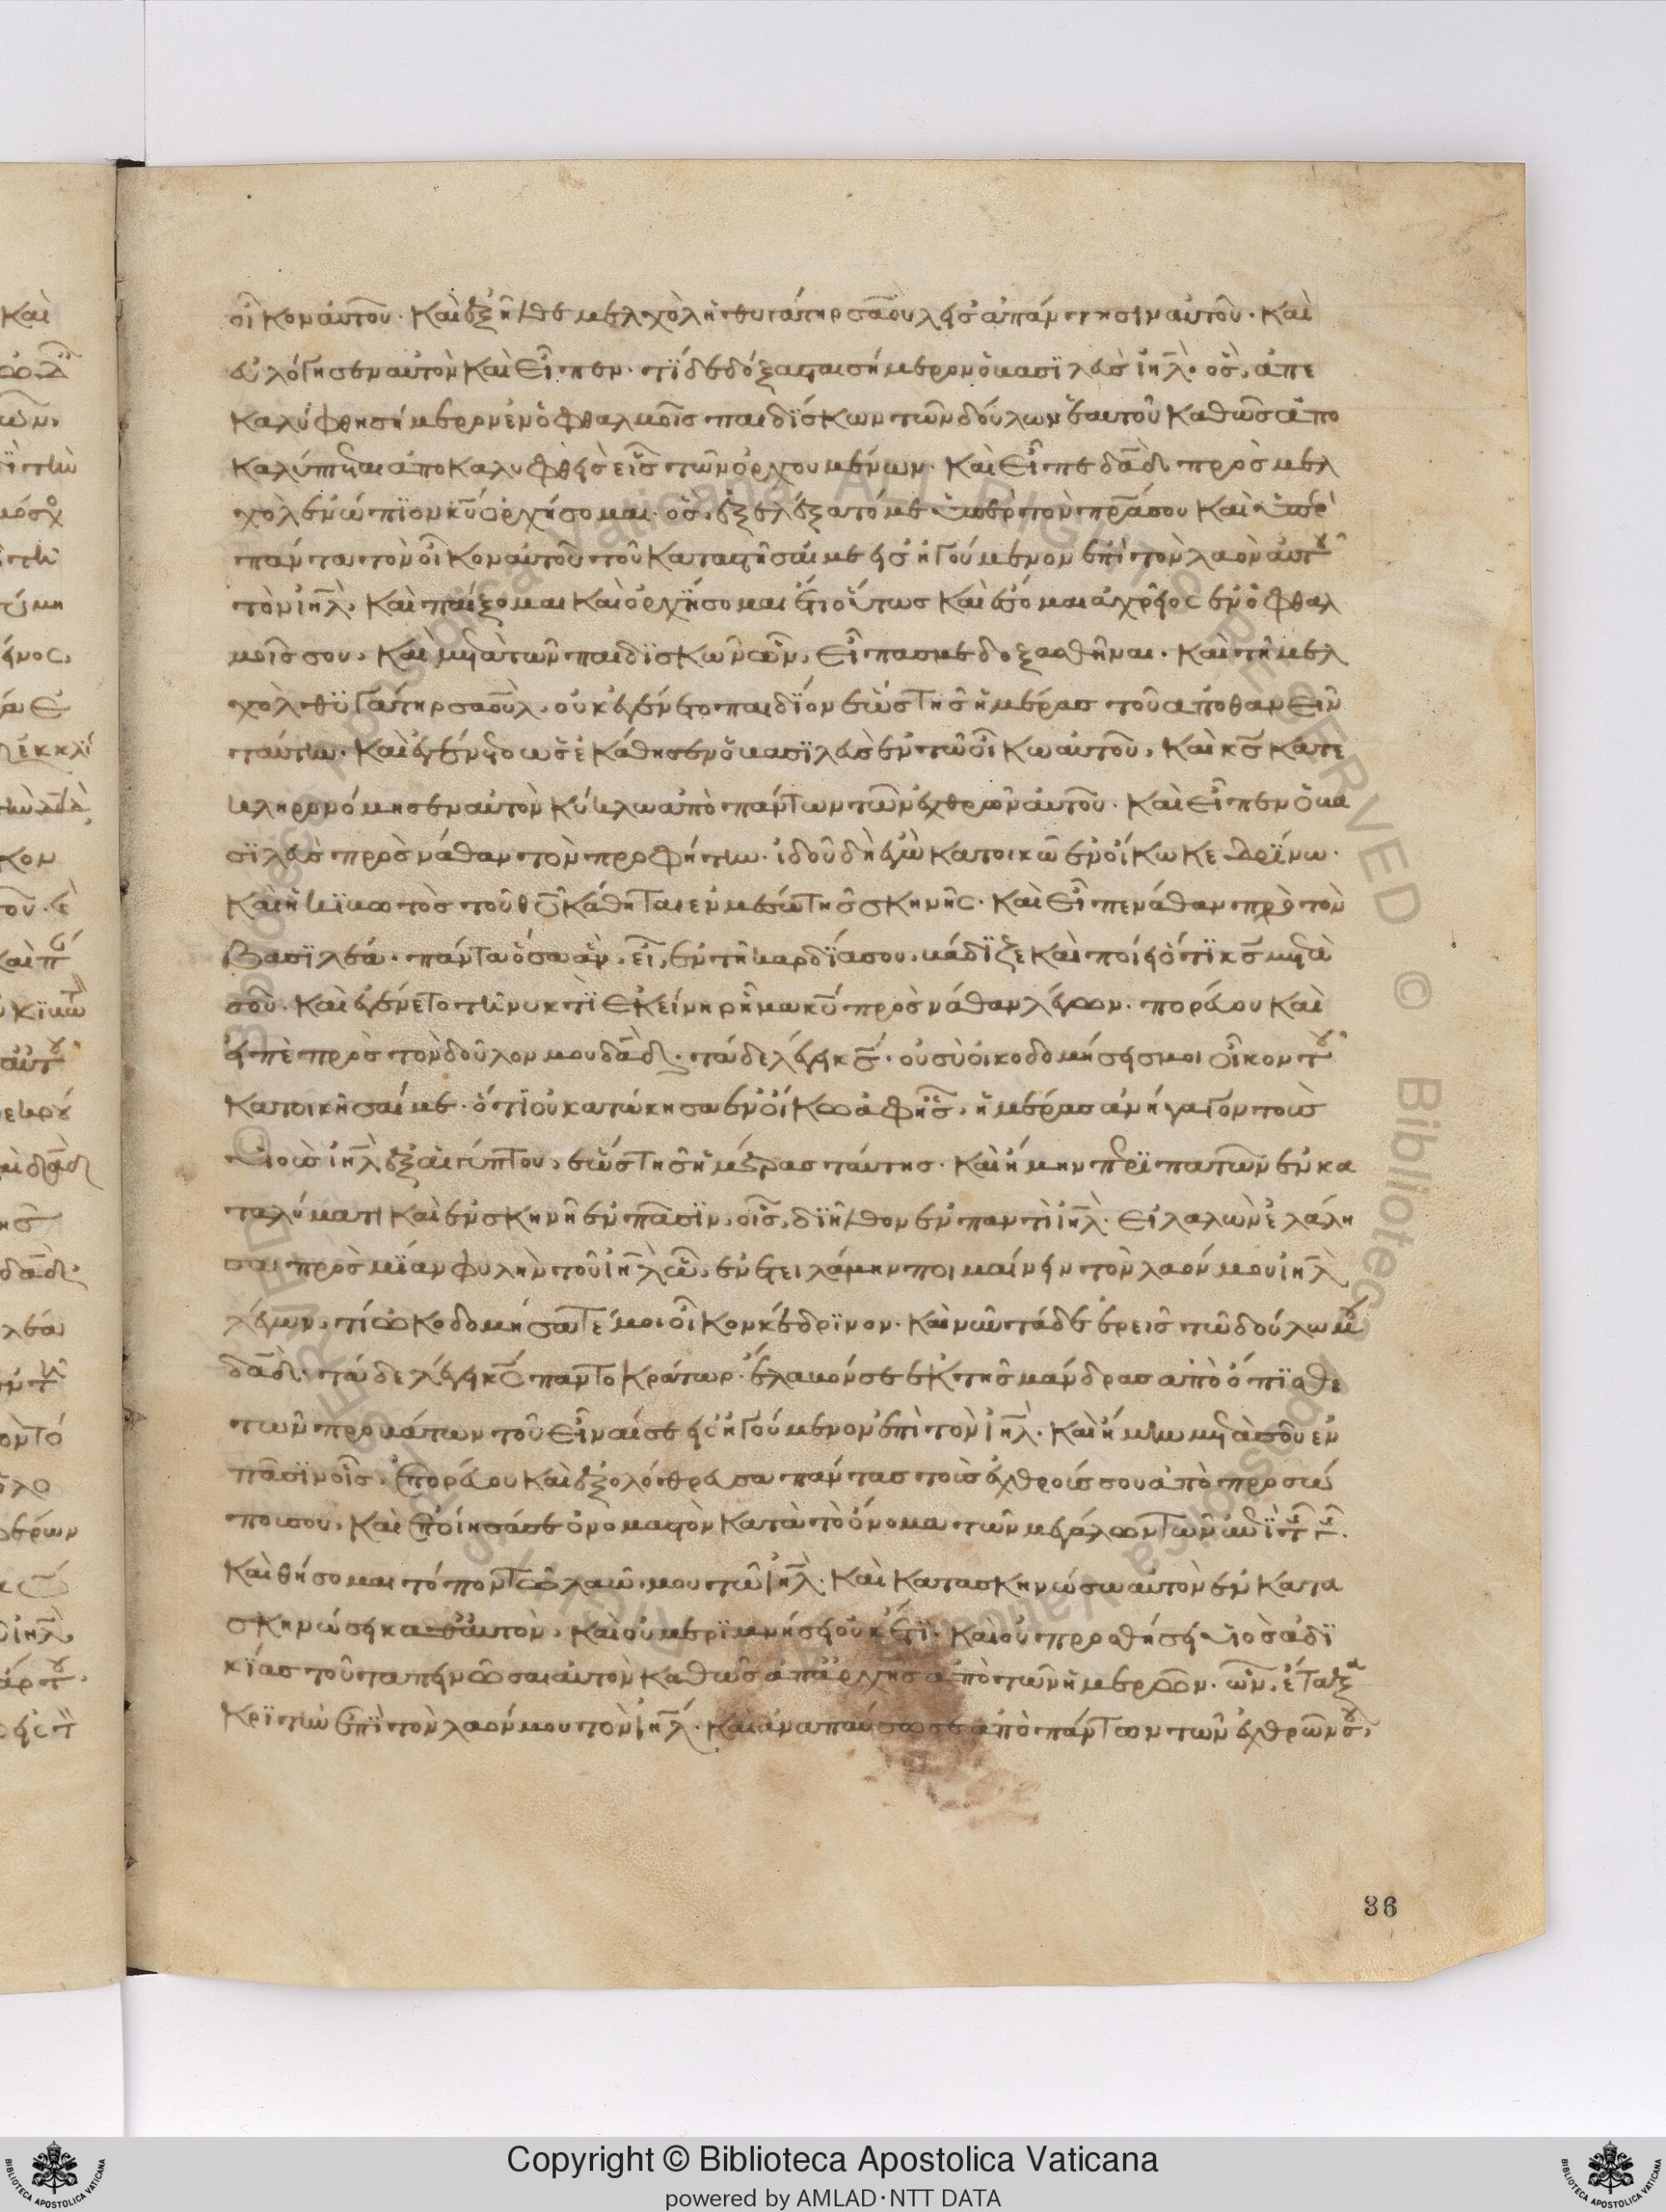 οἶκον αὐτοῦ· καὶ ἐξῆλθε μελχὸλ ἡ θυγάτηρ σαοὺλ εἰς ἀπάντησιν αὐτοῦ· καὶ
εὐλόγησεν αὐτὸν καὶ εἶπεν· τί δεδόξασται σήμερον ὁ βασϊλεὺς ἰη̅λ· ὃς, ἀπε
καλύφθη σήμερον ἐν ὀφθαλμοῖς παιδϊσκων τῶν δούλων ἑαυτοῦ καθὼς ἀπο
καλύπτεται ἀποκαλυφθεὶς εἷς τῶν ὀρχουμένων· καὶ εἶπε δα̅δ πρὸς μελ
χὸλ ἐνώπϊον κ̅υ ὀρχήσομαι· ὃς, ἐξελέξατό με ὑπὲρ τὸν π̅ρ̅α σου καὶ ὑπὲρ
πάντα τὸν οἶκον αὐτοῦ τοῦ καταστῆσαί με εἰς ἡγούμενον ἐπὶ τὸν λαὸν αὐτοῦ
τὸν ἰη̅λ, καὶ παίξομαι καὶ ὀρχήσομαι ἔτι οὕτως καὶ ἔσομαι ἀχρεῖος ἐν ὀφθαλ
μοῖς σου, καὶ μετὰ τῶν παιδϊσκῶν ὧν, εἶπας με δοξασθῆναι· καὶ τῆ μελ
χὸλ θϋγάτηρ σαοὺλ, οὐκ ἐγένετο παιδϊον ἕως τῆς ἡμέρας τοῦ ἀποθανεῖν
ταύτην· καὶ ἐγένετο ὡς ἐκάθησεν ὁ βασϊλεὺς ἐν τῶ οἴκω αὐτοῦ, καὶ κ̅ς κατε
κληρονόμησεν αὐτὸν κύκλω ἀπὸ πάντων τῶν ἐχθρῶν αὐτοῦ· καὶ εἶπεν ὁ βα
σϊλεὺς πρὸς νάθαν τὸν προφήτην· ἰδοὺ δὴ ἐγὼ κατοικῶ ἐν οἴκω κεδρϊνω·
καὶ ἡ κϊβωτὸς τοῦ θ̅υ κάθηται ἐν μέσω τῆς σκηνῆς· καὶ εἶπε νάθαν πρὸς τὸν
βασϊλέα· πάντα ὅσα ἂν, εἶ, ἐν τῆ καρδϊα σου, βάδϊζε καὶ ποίει ὅτϊ κ̅ς μετὰ
σοῦ· καὶ ἐγένετο τῆ νυκτὶ ἐκείνη ῥῆμα κ̅υ πρὸς νάθαν λέγων· πορεύου καὶ
εἰπὲ πρὸς τὸν δοῦλον μου δα̅δ· τάδε λέγει κ̅ς· οὐ σὺ οἰκοδομήσεις μοι οἶκον τοῦ
κατοικῆσαί με· ὅτϊ οὐ κατώκησα ἐν οἴκω ἀφ' ἧς, ἡμέρας ἀνήγαγον τοὺς
ὑιοὺς ἰη̅λ ἐξ αἰγύπτου, ἕως τῆς ἡμέρας ταύτης· καὶ ἤμην περϊπατῶν ἐν κα
ταλύματι καὶ ἐν σκηνῆ ἐν πᾶσϊν, οἷς, δϊῆλθον ἐν παντὶ ἰη̅λ· εἰ λαλῶν ἐλάλη
σα πρὸς μϊαν φυλὴν τοῦ ἰη̅λ ὧ, ἐντειλάμην ποιμαίνειν τὸν λαόν μου ἰη̅λ
λέγων, τί ὠκοδομήσατέ μοι οἶκον κέδρϊνον· καὶ νῦν τάδε ἐρεῖς τῶ δούλω μου
δα̅δ· τάδε λέγει κ̅ς παντοκράτωρ· ἔλαβόν σε ἐκ τῆς μάνδρας ἀπὸ ὄπϊσθε
τῶν προβάτων τοῦ εἶναί σε εἰς ἡγούμενον ἐπὶ τὸν ἰη̅λ· καὶ ἤμην μετὰ σοῦ ἐν
πᾶσϊν οἷς, ἐπορεύου καὶ ἐξολόθρευσα πάντας τοὺς ἐχθρούς σου ἀπὸ προσώ
που σου, καὶ ἐποίησά σε ὀνομαστὸν κατὰ τὸ ὄνομα τῶν μεγάλων τῶν ἐπὶ τῆς γῆς·
καὶ θήσομαι τόπον τῶ λαῶ μου τῶ ἰη̅λ· καὶ κατασκηνώσω αὐτὸν ἐν κατα
σκηνώσει καθ' αὐτὸν, καὶ οὐ μερϊμνήσει οὐκ ἔτϊ· καὶ οὐ προσθήσει ὑιὸς ἀδϊ
κϊας τοῦ ταπεινῶσαι αὐτὸν καθὼς ἀπ' ἀρχῆς ἀπὸ τῶν ἡμερῶν· ὧν, ἔταξα
κρϊτὴν ἐπὶ τὸν λαόν μου τὸν ἰη̅λ· καὶ ἀναπαύσω σε ἀπὸ πάντων τῶν ἐχθρῶν σου,
36
Copyright © Biblioteca Apostolica Vaticana
powered by AMLAD·NTT DATA